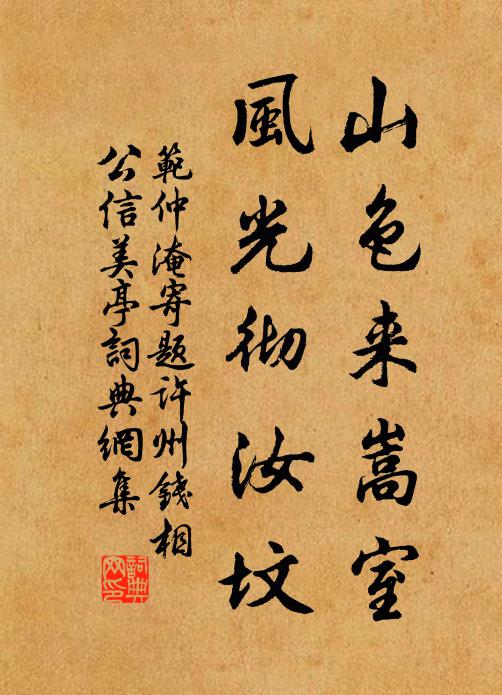 山色来嵩室
風光彻汝坟
範仲淹寄题许州錢相
公信美亭詞典網集
詞典
网印